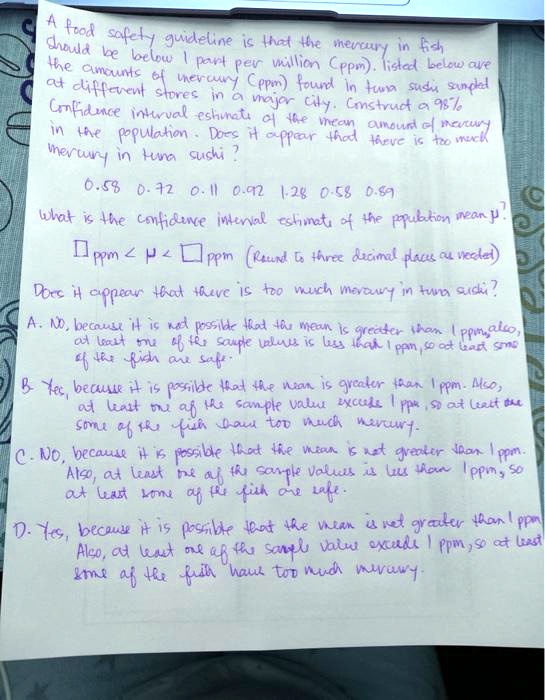 A food safety guideline is that the mercury in fish
should be below 1 part per million (ppm). listed below are
the amounts of mercury (ppm) found in tuna sushi sampled
at different stores in a major city. Construct a 98%
Confidence interval estimate of the mean amount of mercury
in the population. Does it appear that there is too much
mercury in tuna sushi?
0.58 0.72 0.11 0.92 1.28 0.58 0.89
What is the confidence interval estimate of the population mean μ?
□ ppm < μ < □ ppm (Round to three decimal places as needed)
Does it appear that there is too much mercury in tuna sushi?
A. No, because it is not possible that the mean is greater than 1 ppm, also,
at least one of the sample values is less than 1 ppm, so at least some
of the fish are safe.
B. Yes, because it is possible that the mean is greater than 1 ppm. Also,
at least one of the sample value exceeds 1 ppm, so at least one
some of the fish have too much mercury.
C. No, because it is possible that the mean is not greater than 1 ppm.
Also, at least one of the sample values is less than 1 ppm, so
at least some of the fish are safe.
D. Yes, because it is possible that the mean is not greater than 1 ppm
Also, at least one of the sample value exceeds 1 ppm, so at least
some of the fish have too much mercury.